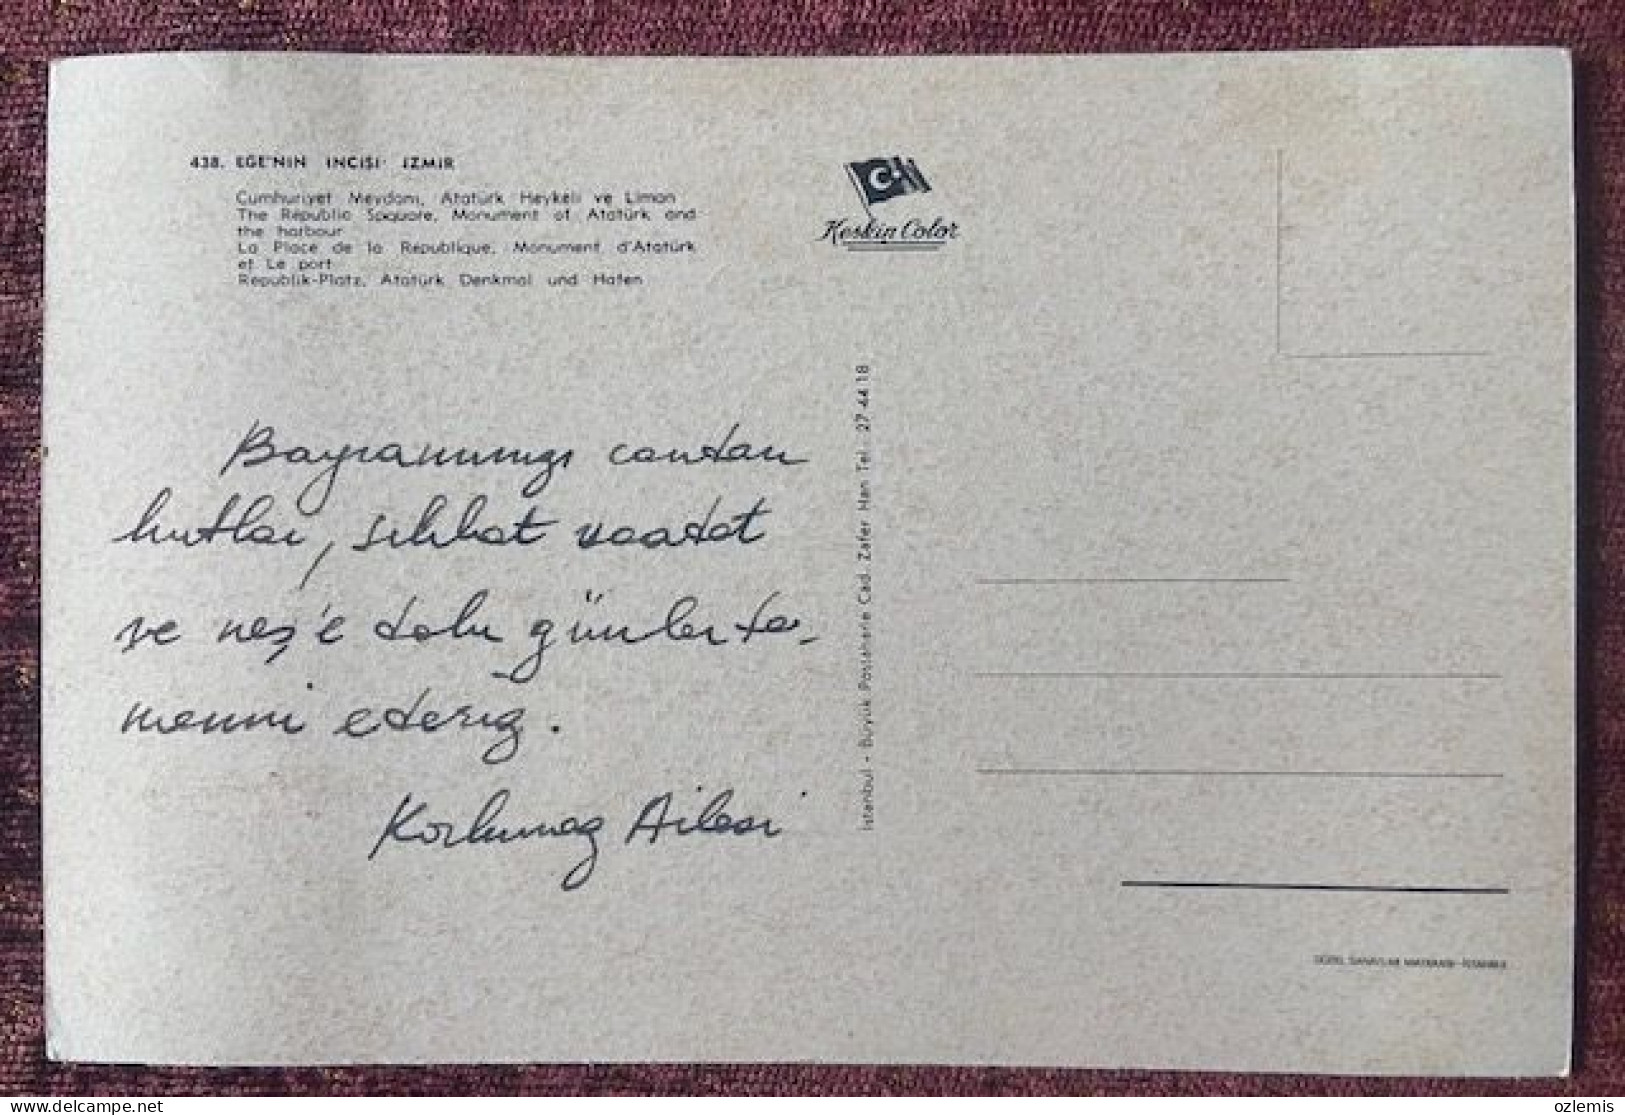 438. EGE'NİN İNCİSİ İZMİR
Cumhuriyet Meydanı, Atatürk Heykeli ve Liman
The Republic Sqquare, Monument of Atatürk and
the harbour
La Place de la Republique, Monument d'Atatürk
et Le port
Republik-Platz, Atatürk Denkmal und Hafen
Keskin Color
Bayramınızı candan
kutlar, sıhhat saadet
ve neş'e dolu günler te-
menni ederiz.
Korkmaz Ailesi
İstanbul - Büyük Postahane Cad. Zafer Han Tel. 27 44 18
GÜZEL SANATLAR MATBAASI-İSTANBUL
delcampe.net
ozlemis